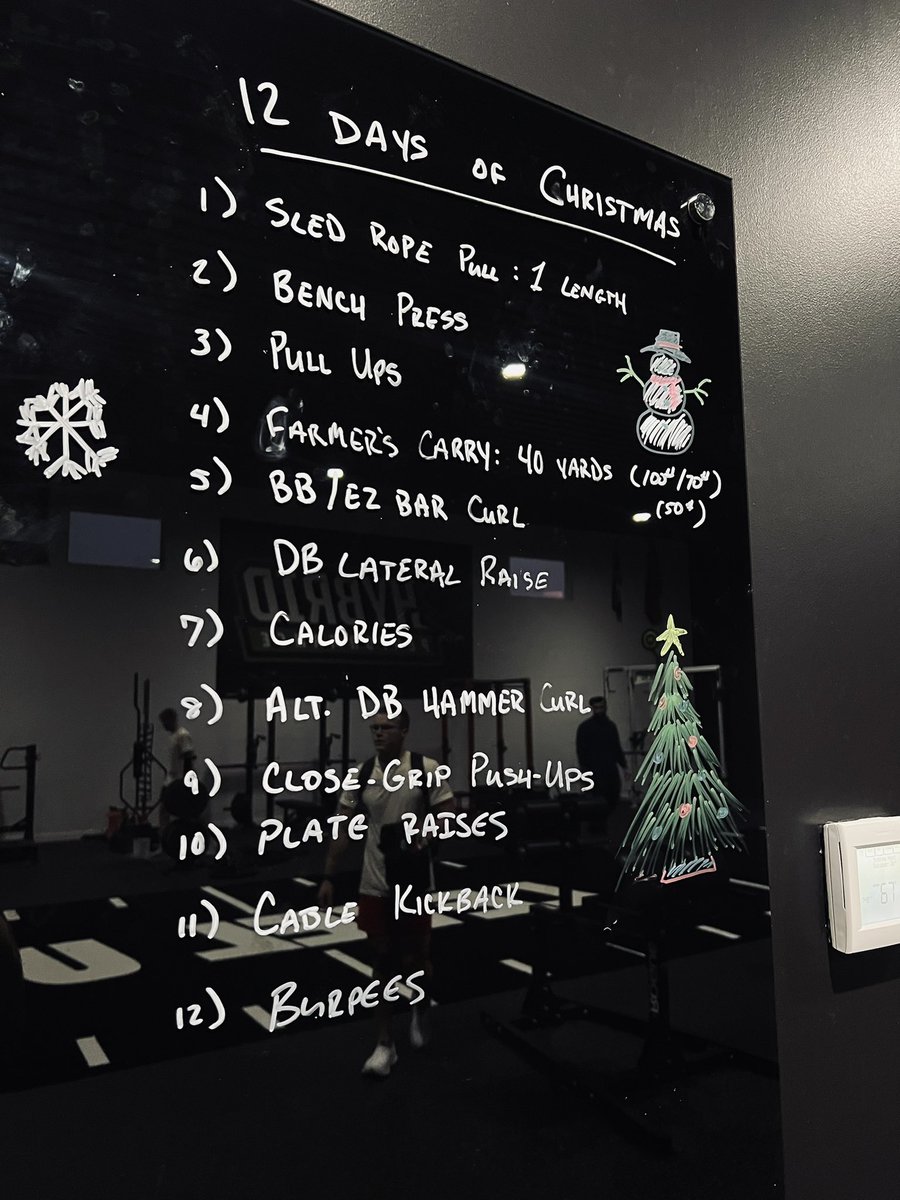 12 DAYS OF CHRISTMAS
1) SLED ROPE PULL: 1 LENGTH
2) BENCH PRESS
3) PULL UPS
4) FARMER'S CARRY: 40 YARDS (100#/70#)
(50#)
5) BB/EZ BAR CURL
6) DB LATERAL RAISE
7) CALORIES
8) ALT. DB HAMMER CURL
9) CLOSE-GRIP PUSH-UPS
10) PLATE RAISES
11) CABLE KICKBACK
12) BURPEES
HYBRID
67